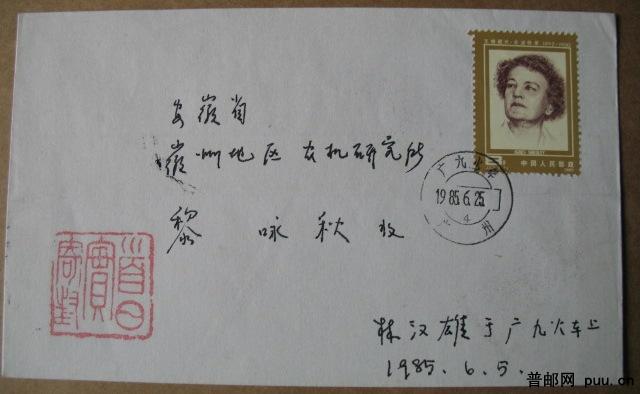 中国人民邮政
安徽省
徽州地区农机研究所
黎咏秋收
广九火车
1985.6.25
4
广州
首日實寄封
林汉雄于广九火车上
1985.6.5.
普邮网 puu.cn